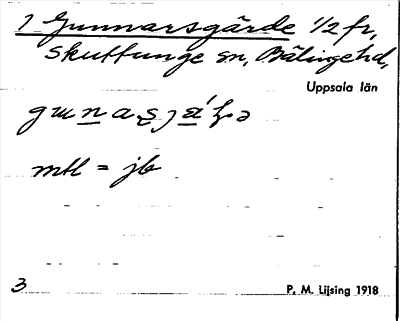 1 Gunnarsgärde 1/2 fr,
Skuttunge sn, Bälinge hd,
Uppsala län
mtl = jb
3 P. M. Lijsing 1918